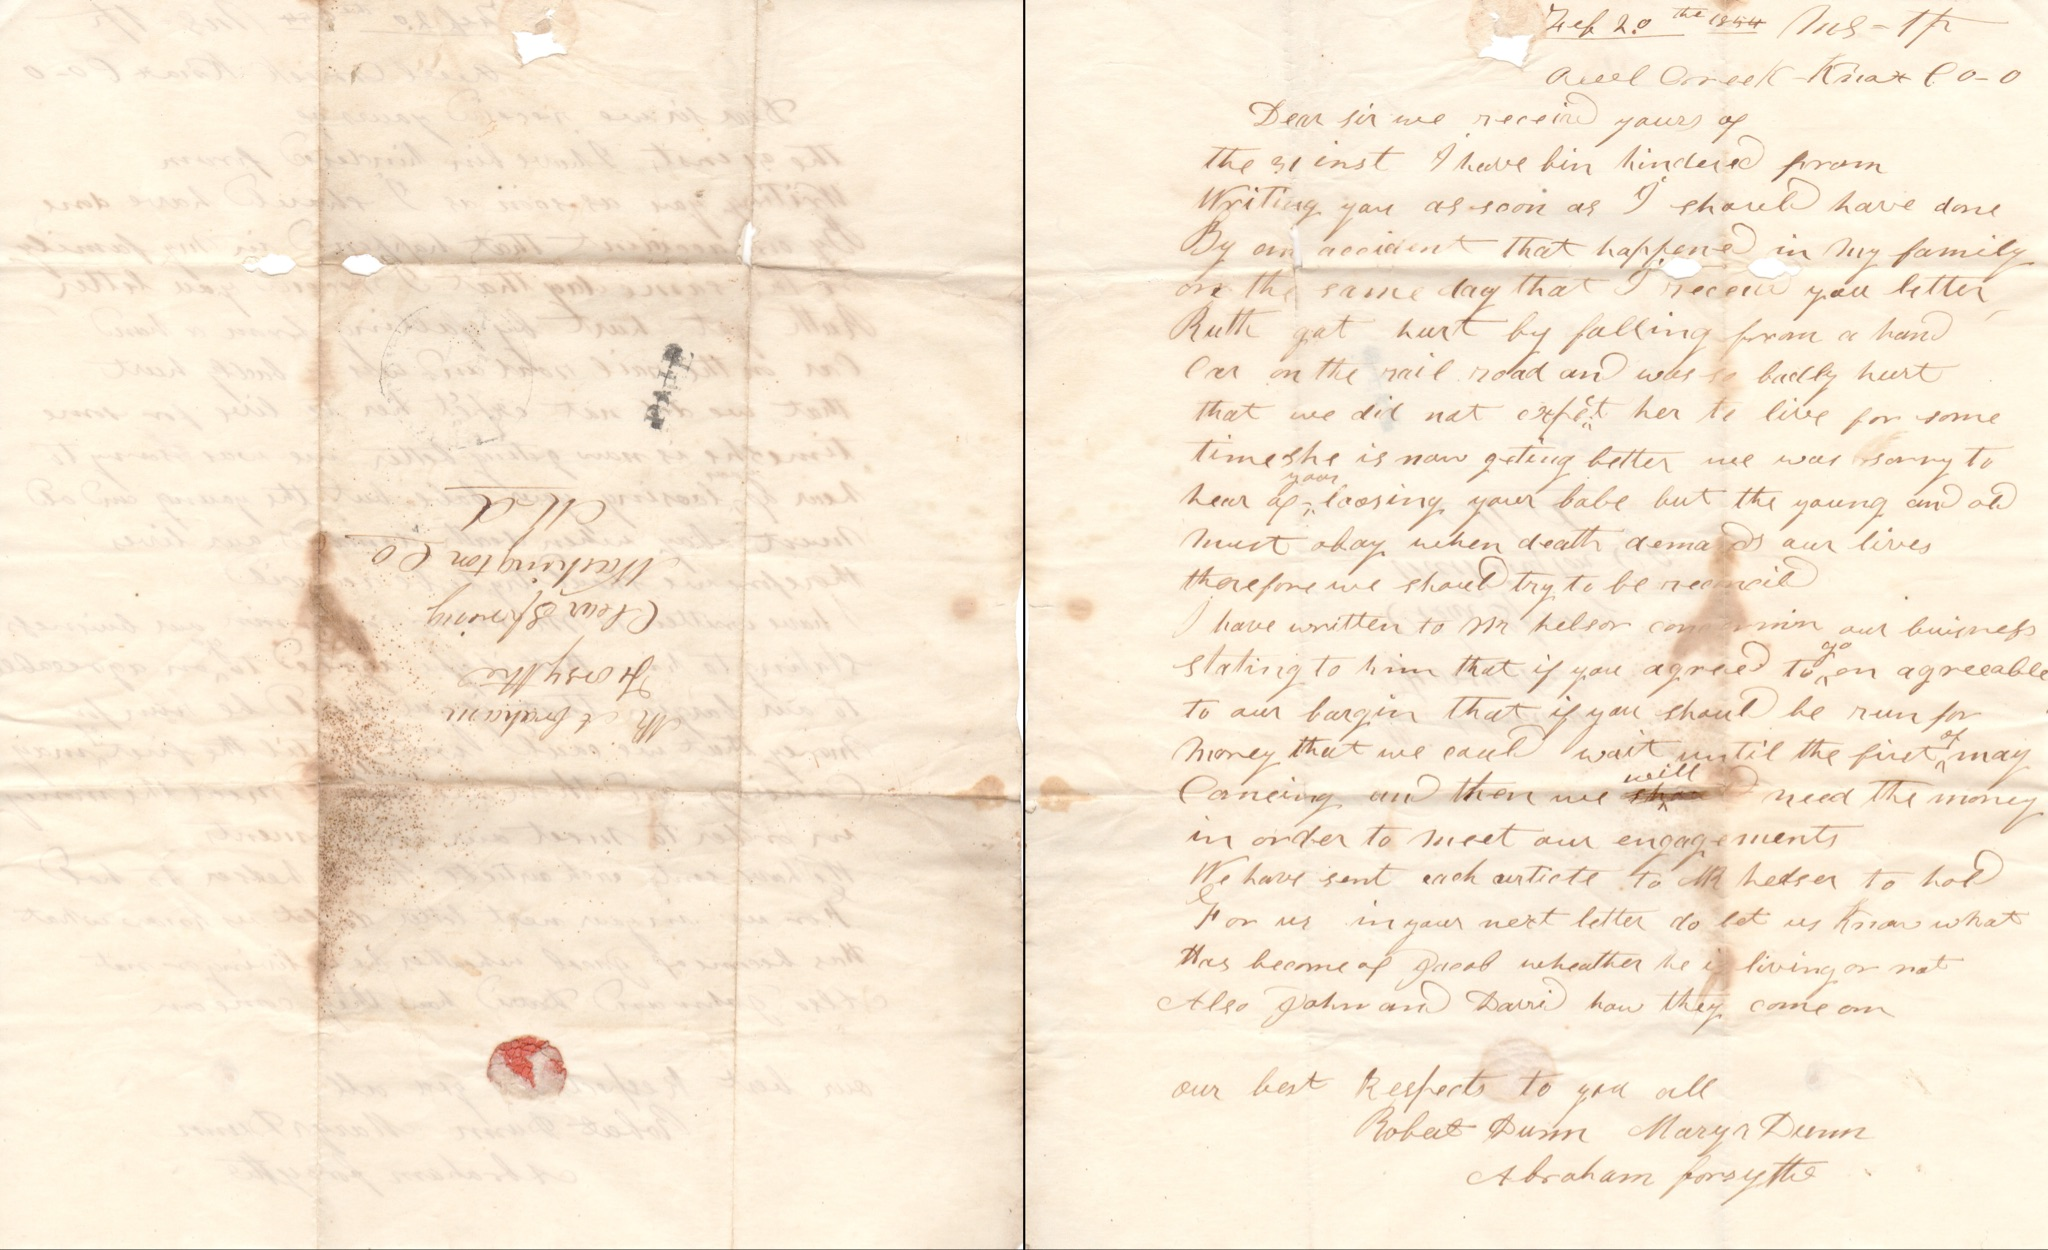 PAID
Mr Abraham
Forsythe
Clear Spring
Washington Co
Md
Feb 20 the 1854 MS - Tp
Owl Creek Knox Co - O
Dear sir we receivd yours of
the 31 inst I have bin hindered from
Writing you as soon as I should have done
By an accident that happened in My family
on the same day that I receivd you letter
Ruth got hurt by falling from a hand
Car on the rail road and was so badly hurt
that we did not expect her to live for some
time she is now geting better we was sorry to
hear of your loosing your babe but the young and old
Must obay when death demands our lives
therefore we should try to be reconcild
I have written to Mr our buisness
stating to him that if you agreed to go on agreeable
to our bargin that if you should be run for
Money that we could wait until the first of may
Comeing and then we will need the money
in order to meet our engagements
We have sent each article to Mr to hold
For us in your next letter do let us Know what
Has become of Jacob wheather he is living or not
Also John and David how they come on
our best Respects to you all
Robert Dunn Mary A Dunn
Abraham forsythe